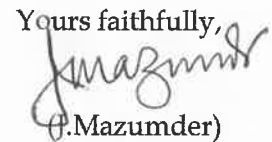 Yours faithfully,
Jmazumdr
(J.Mazumder)